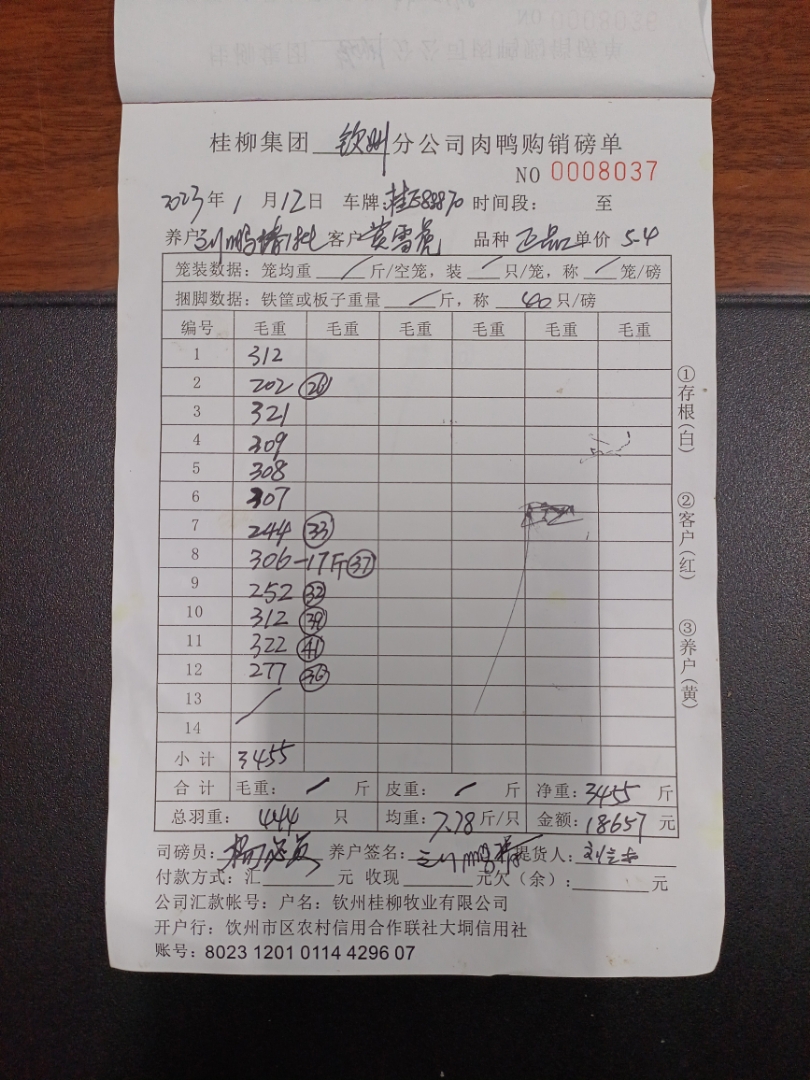 桂柳集团 钦州 分公司肉鸭购销磅单
NO 0008037
2023年 1 月 12日 车牌:桂E88870 时间段: 至
养户: 刘鹏 客户: 黄雪虎 品种 正品 单价 5.4
笼装数据: 笼均重 / 斤/空笼, 装 / 只/笼, 称 / 笼/磅
捆脚数据: 铁筐或板子重量 / 斤, 称 40 只/磅
编号 毛重 毛重 毛重 毛重 毛重 毛重
1 312
2 202 26
3 321
4 309
5 308
6 307
7 244 33
8 306-17斤 37
9 252 32
10 312 39
11 322 41
12 277 36
13 /
14
小计 3455
合计 毛重: / 斤 皮重: / 斤 净重: 3455 斤
总羽重: 444 只 均重: 7.78 斤/只 金额: 18657 元
司磅员: 养户签名: 刘鹏 提货人:
付款方式: 汇 元 收现 元欠(余): 元
公司汇款帐号: 户名: 钦州桂柳牧业有限公司
开户行: 钦州市区农村信用合作联社大垌信用社
账号: 8023 1201 0114 4296 07
①存根(白)
②客户(红)
③养户(黄)